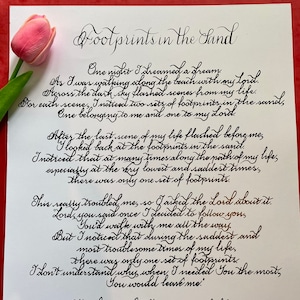 Footprints in the Sand
One night I dreamed a dream.
As I was walking along the beach with my Lord.
Across the dark sky flashed scenes from my life.
For each scene, I noticed two sets of footprints in the sand,
One belonging to me and one to my Lord.
After the last scene of my life flashed before me,
I looked back at the footprints in the sand.
I noticed that at many times along the path of my life,
especially at the very lowest and saddest times,
there was only one set of footprints.
This really troubled me, so I asked the Lord about it.
Lord, you said once I decided to follow you,
You'd walk with me all the way.
But I noticed that during the saddest and
most troublesome times of my life,
there was only one set of footprints.
I don't understand why, when I needed You the most,
You would leave me.